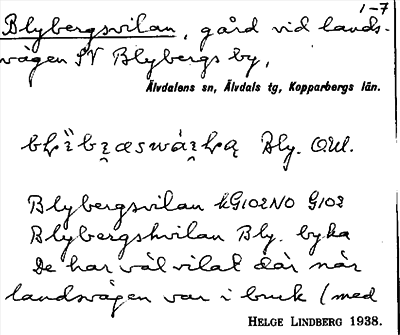 1-7
Blybergsvilan, gård vid lands-
vägen SV Blybergs by,
Älvdalens sn, Älvdals tg, Kopparbergs län.
Bly. O.U.
Blybergsvilan kG102NO G102
Blybergshvilan Bly. byka
De har väl vilat där när
landsvägen var i bruk (med
HELGE LINDBERG 1938.